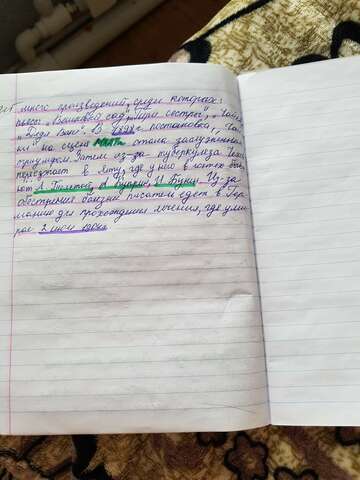 много произведений, среди которых:
пьесы „Вишнёвый сад", „Три сестры", „Чайка",
„Дядя Ваня". В 1898г. постановка „Чай-
ки" на сцене МХАТа стала заслуженным
триумфом. Затем из-за туберкулёза Чехов
переезжает в Ялту, где у него в гостях быва-
ют Л. Толстой, А. Куприн, И. Бунин. Из-за
обострения болезни писатель едет в Гер-
манию для прохождения лечения, где уми-
рает 2 июля 1904г.